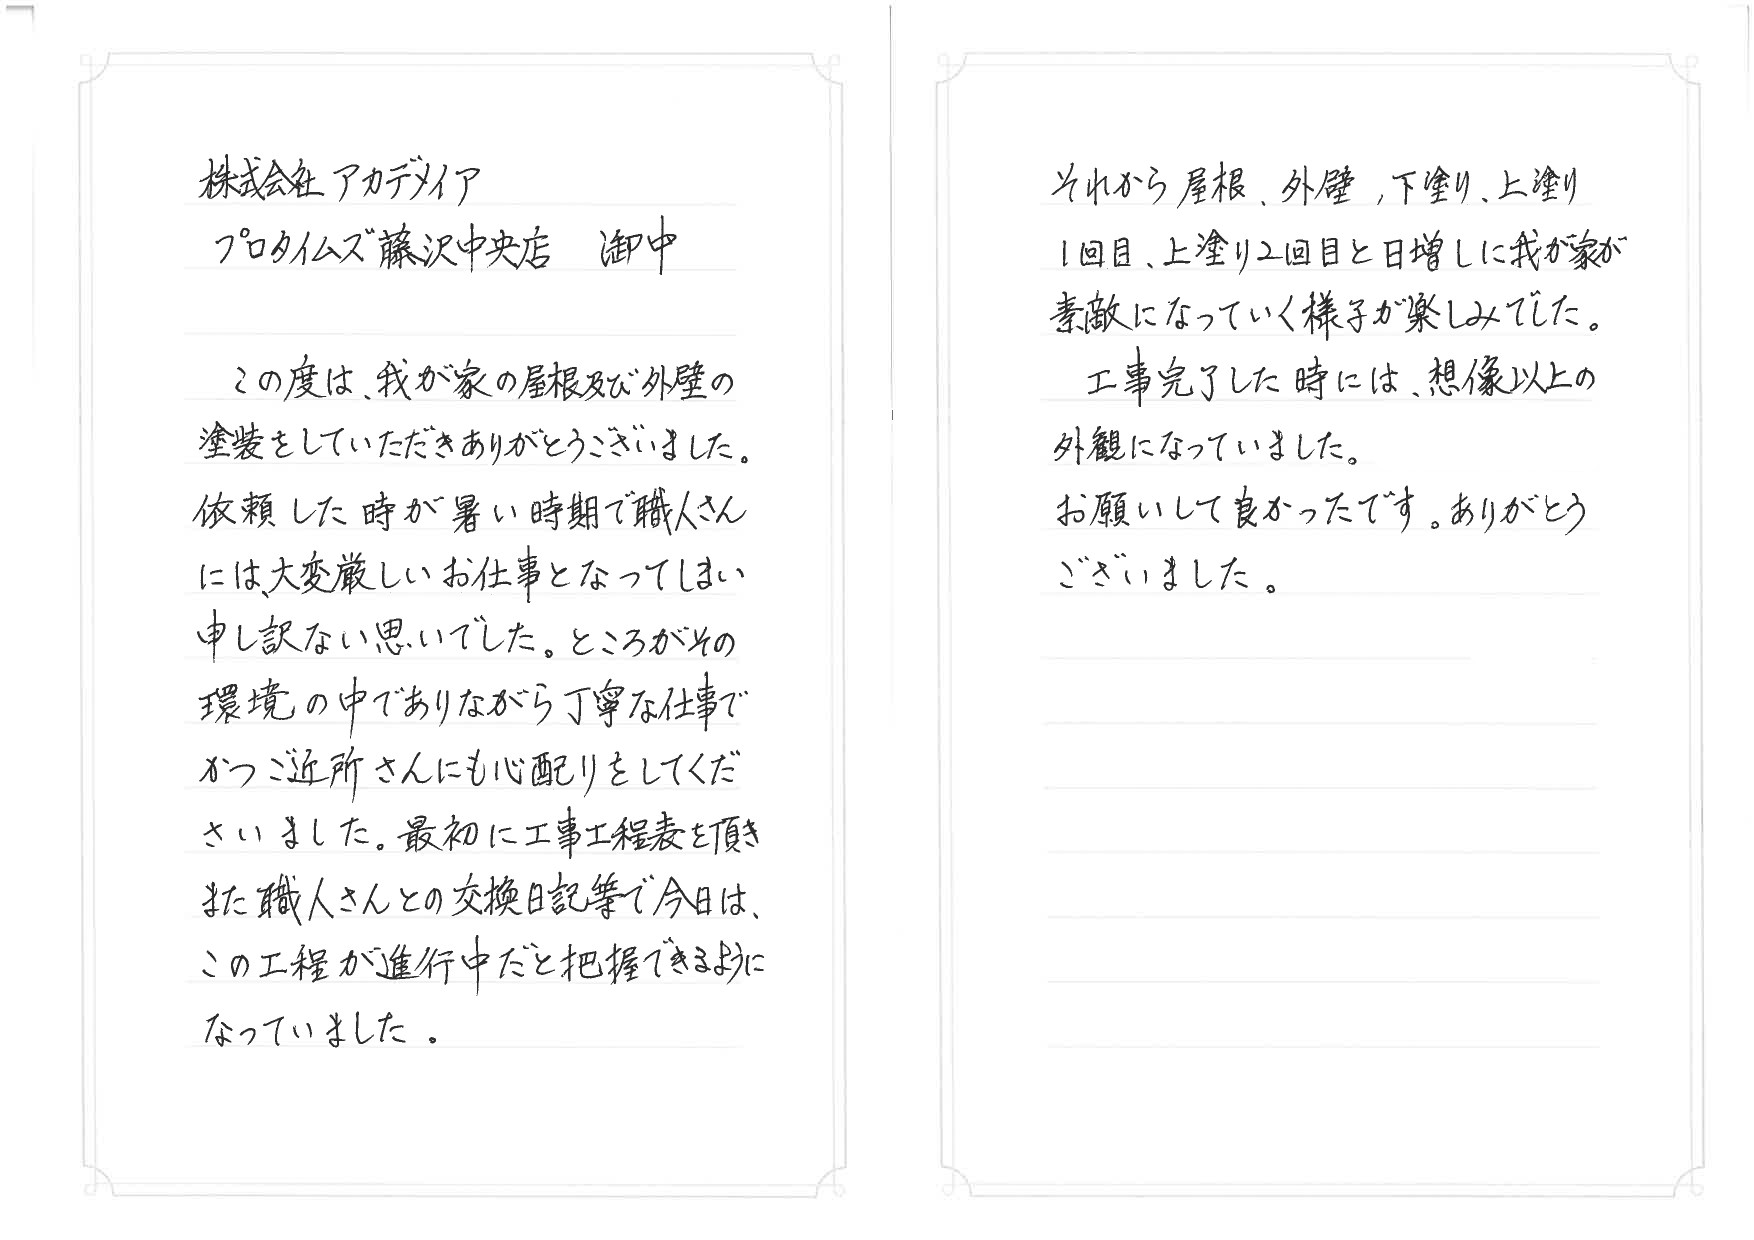 株式会社アカデメイア
プロタイムズ藤沢中央店　御中
この度は、我が家の屋根及び外壁の
塗装をしていただきありがとうございました。
依頼した時が暑い時期で職人さん
には、大変厳しいお仕事となってしまい
申し訳ない思いでした。ところがその
環境の中でありながら丁寧な仕事で
かつご近所さんにも心配りをしてくだ
さいました。最初に工事工程表を頂き
また職人さんとの交換日記等で今日は、
この工程が進行中だと把握できるように
なっていました。
それから屋根、外壁、下塗り、上塗り
1回目、上塗り2回目と日増しに我が家が
素敵になっていく様子が楽しみでした。
工事完了した時には、想像以上の
外観になっていました。
お願いして良かったです。ありがとう
ございました。